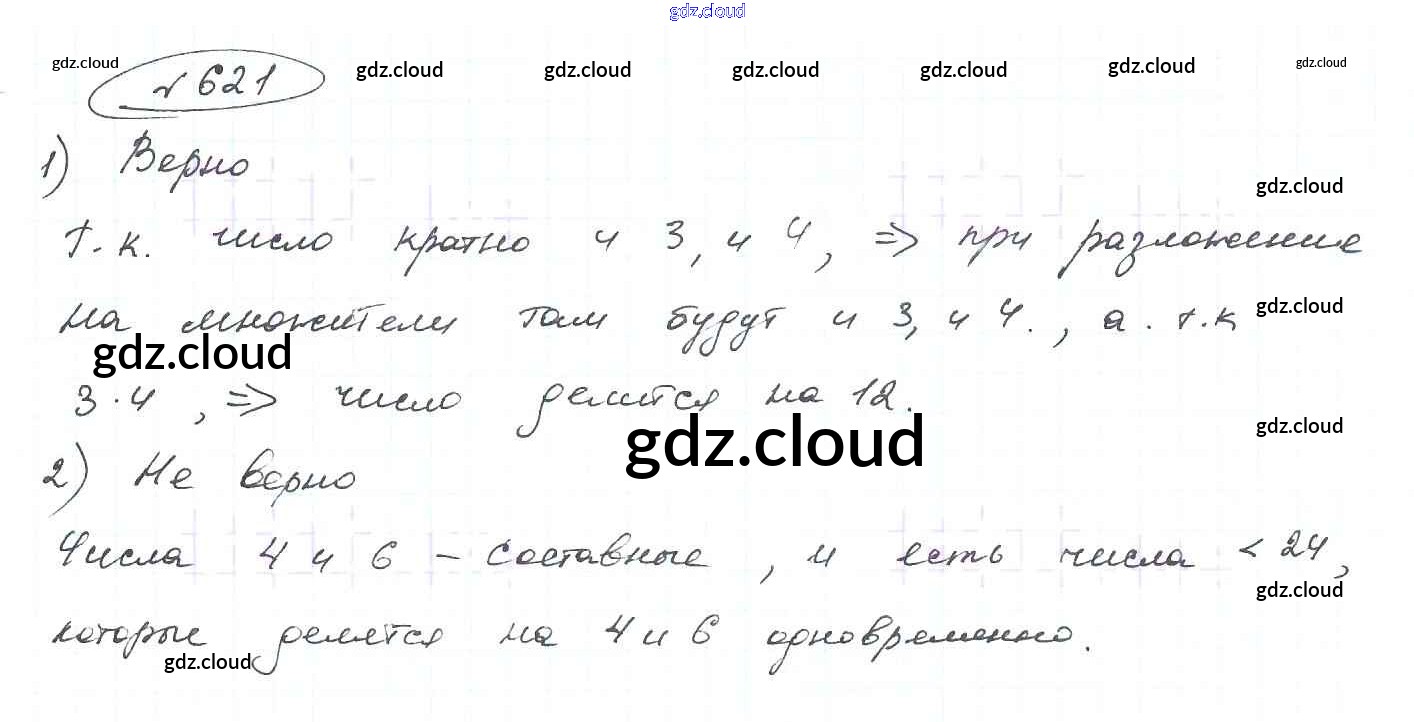 gdz.cloud
gdz.cloud gdz.cloud gdz.cloud gdz.cloud gdz.cloud gdz.cloud gdz.cloud
№ 621
1) Верно
gdz.cloud
т.к. число кратно и 3, и 4, => при разложение
на множители там будут и 3, и 4., а. т.к
gdz.cloud
gdz.cloud
3·4, => число делится на 12.
gdz.cloud
gdz.cloud
2) Не верно
Числа 4 и 6 – составные, и есть числа < 24,
gdz.cloud
которые делятся на 4 и 6 одновременно.
gdz.cloud